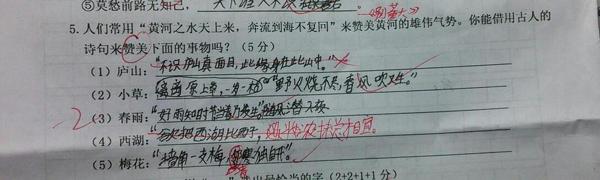 ⑤莫愁前路无知己，天下谁人不识君
5.人们常用“黄河之水天上来，奔流到海不复回”来赞美黄河的雄伟气势。你能借用古人的
诗句来赞美下面的事物吗？（5分）
（1）庐山：“不识庐山真面目，此缘身在此山中。”
（2）小草：离离原上草，一岁一枯 “野火烧不尽，春风吹又生。”
-2（3）春雨：“好雨知时节，当春乃发生。 潜入夜
（4）西湖：“欲把西湖比西子，淡妆浓抹总相宜。
（5）梅花：“墙角一支梅， 寒独自开”。
（2+2+1+1分）